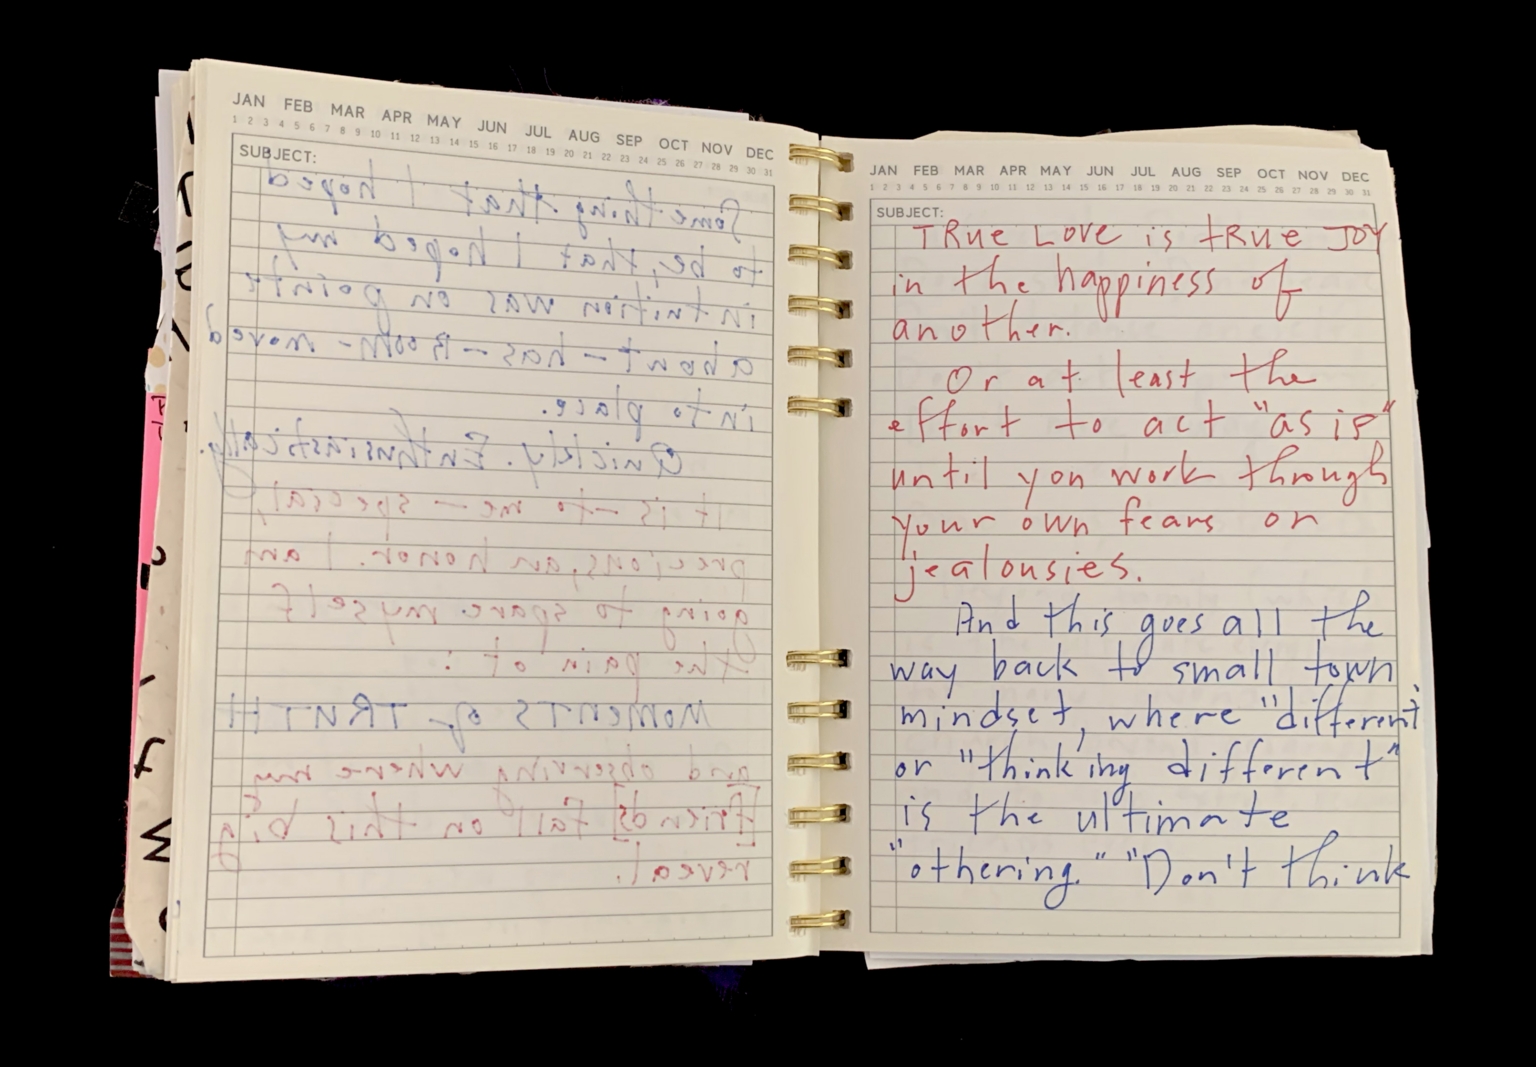 JAN FEB MAR APR MAY JUN JUL AUG SEP OCT NOV DEC
1 2 3 4 5 6 7 8 9 10 11 12 13 14 15 16 17 18 19 20 21 22 23 24 25 26 27 28 29 30 31
SUBJECT:
Something that I hoped
to be, that I hoped my
intuition was on pointe
about - has - BOOM - moved
into place.
Quickly. Enthusiastically.
It is - to me - special,
precious, an honor. I am
going to spare myself
the pain of:
MOMENTS of TRUTH
and observing where my
[friends] fall on this big
reveal.
JAN FEB MAR APR MAY JUN JUL AUG SEP OCT NOV DEC
1 2 3 4 5 6 7 8 9 10 11 12 13 14 15 16 17 18 19 20 21 22 23 24 25 26 27 28 29 30 31
SUBJECT:
TRue Love is tRue JOY
in the happiness of
another.
Or at least the
effort to act "as if"
until you work through
your own fears or
jealousies.
And this goes all the
way back to small town
mindset, where "different"
or "thinking different"
is the ultimate
"othering." "Don't think